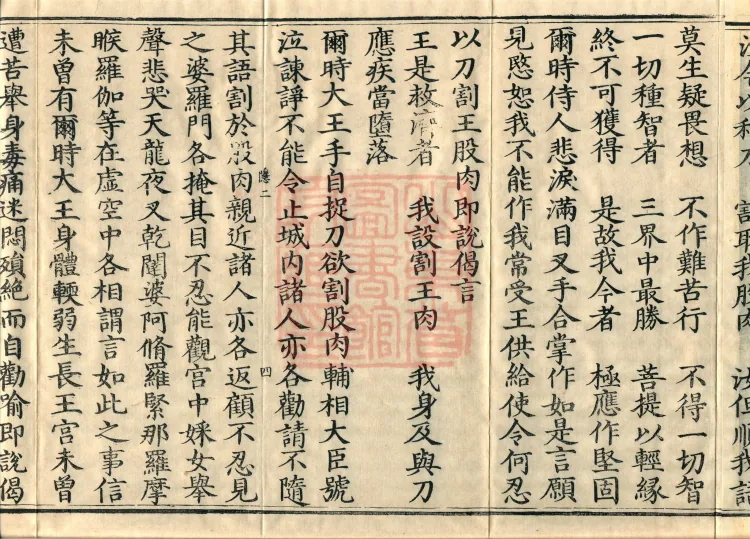 莫生疑畏想　不作難苦行　不得一切智
一切種智者　三界中最勝　菩提以輕緣
終不可獲得　是故我今者　極應作堅固
爾時侍人悲淚滿目叉手合掌作如是言願
見愍恕我不能作我常受王供給使令何忍
以刀割王股肉即說偈言
王是救濟者　我設割王肉　我身及與刀
應疾當墮落
爾時大王手自捉刀欲割股肉輔相大臣號
泣諫諍不能令止城內諸人亦各勸請不隨
其語割於股肉親近諸人亦各返顧不忍見
隱二　四
之婆羅門各掩其目不忍能觀宮中婇女舉
聲悲哭天龍夜叉乾闥婆阿脩羅緊那羅摩
睺羅伽等在虛空中各相謂言如此之事信
未曾有爾時大王身體輭弱生長王宮未曾
遭苦舉身毒痛迷悶殞絕而自勸喻即說偈